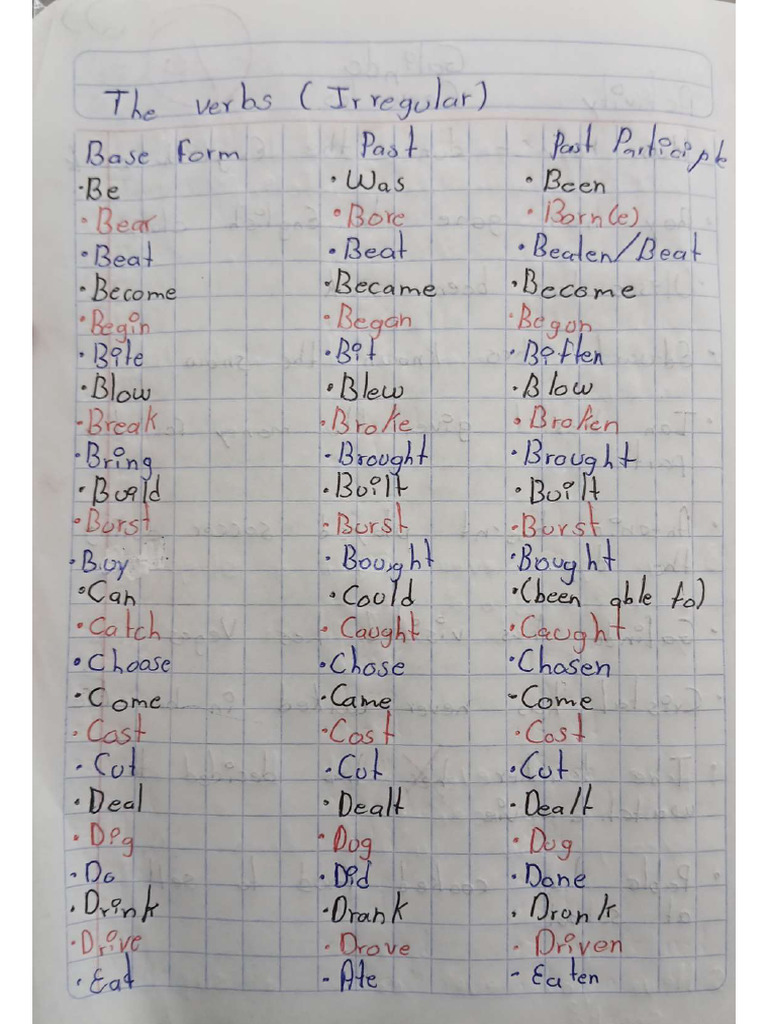 The verbs (Irregular)
Base form Past Past Participle
• Be • Was • Been
• Bear • Bore • Born(e)
• Beat • Beat • Beaten/Beat
• Become • Became • Become
• Begin • Began • Begun
• Bite • Bit • Bitten
• Blow • Blew • Blow
• Break • Broke • Broken
• Bring • Brought • Brought
• Build • Built • Built
• Burst • Burst • Burst
• Buy • Bought • Bought
• Can • Could • (been able to)
• Catch • Caught • Caught
• Choose • Chose • Chosen
• Come • Came • Come
• Cost • Cost • Cost
• Cut • Cut • Cut
• Deal • Dealt • Dealt
• Dig • Dug • Dug
• Do • Did • Done
• Drink • Drank • Drunk
• Drive • Drove • Driven
• Eat • Ate • Eaten